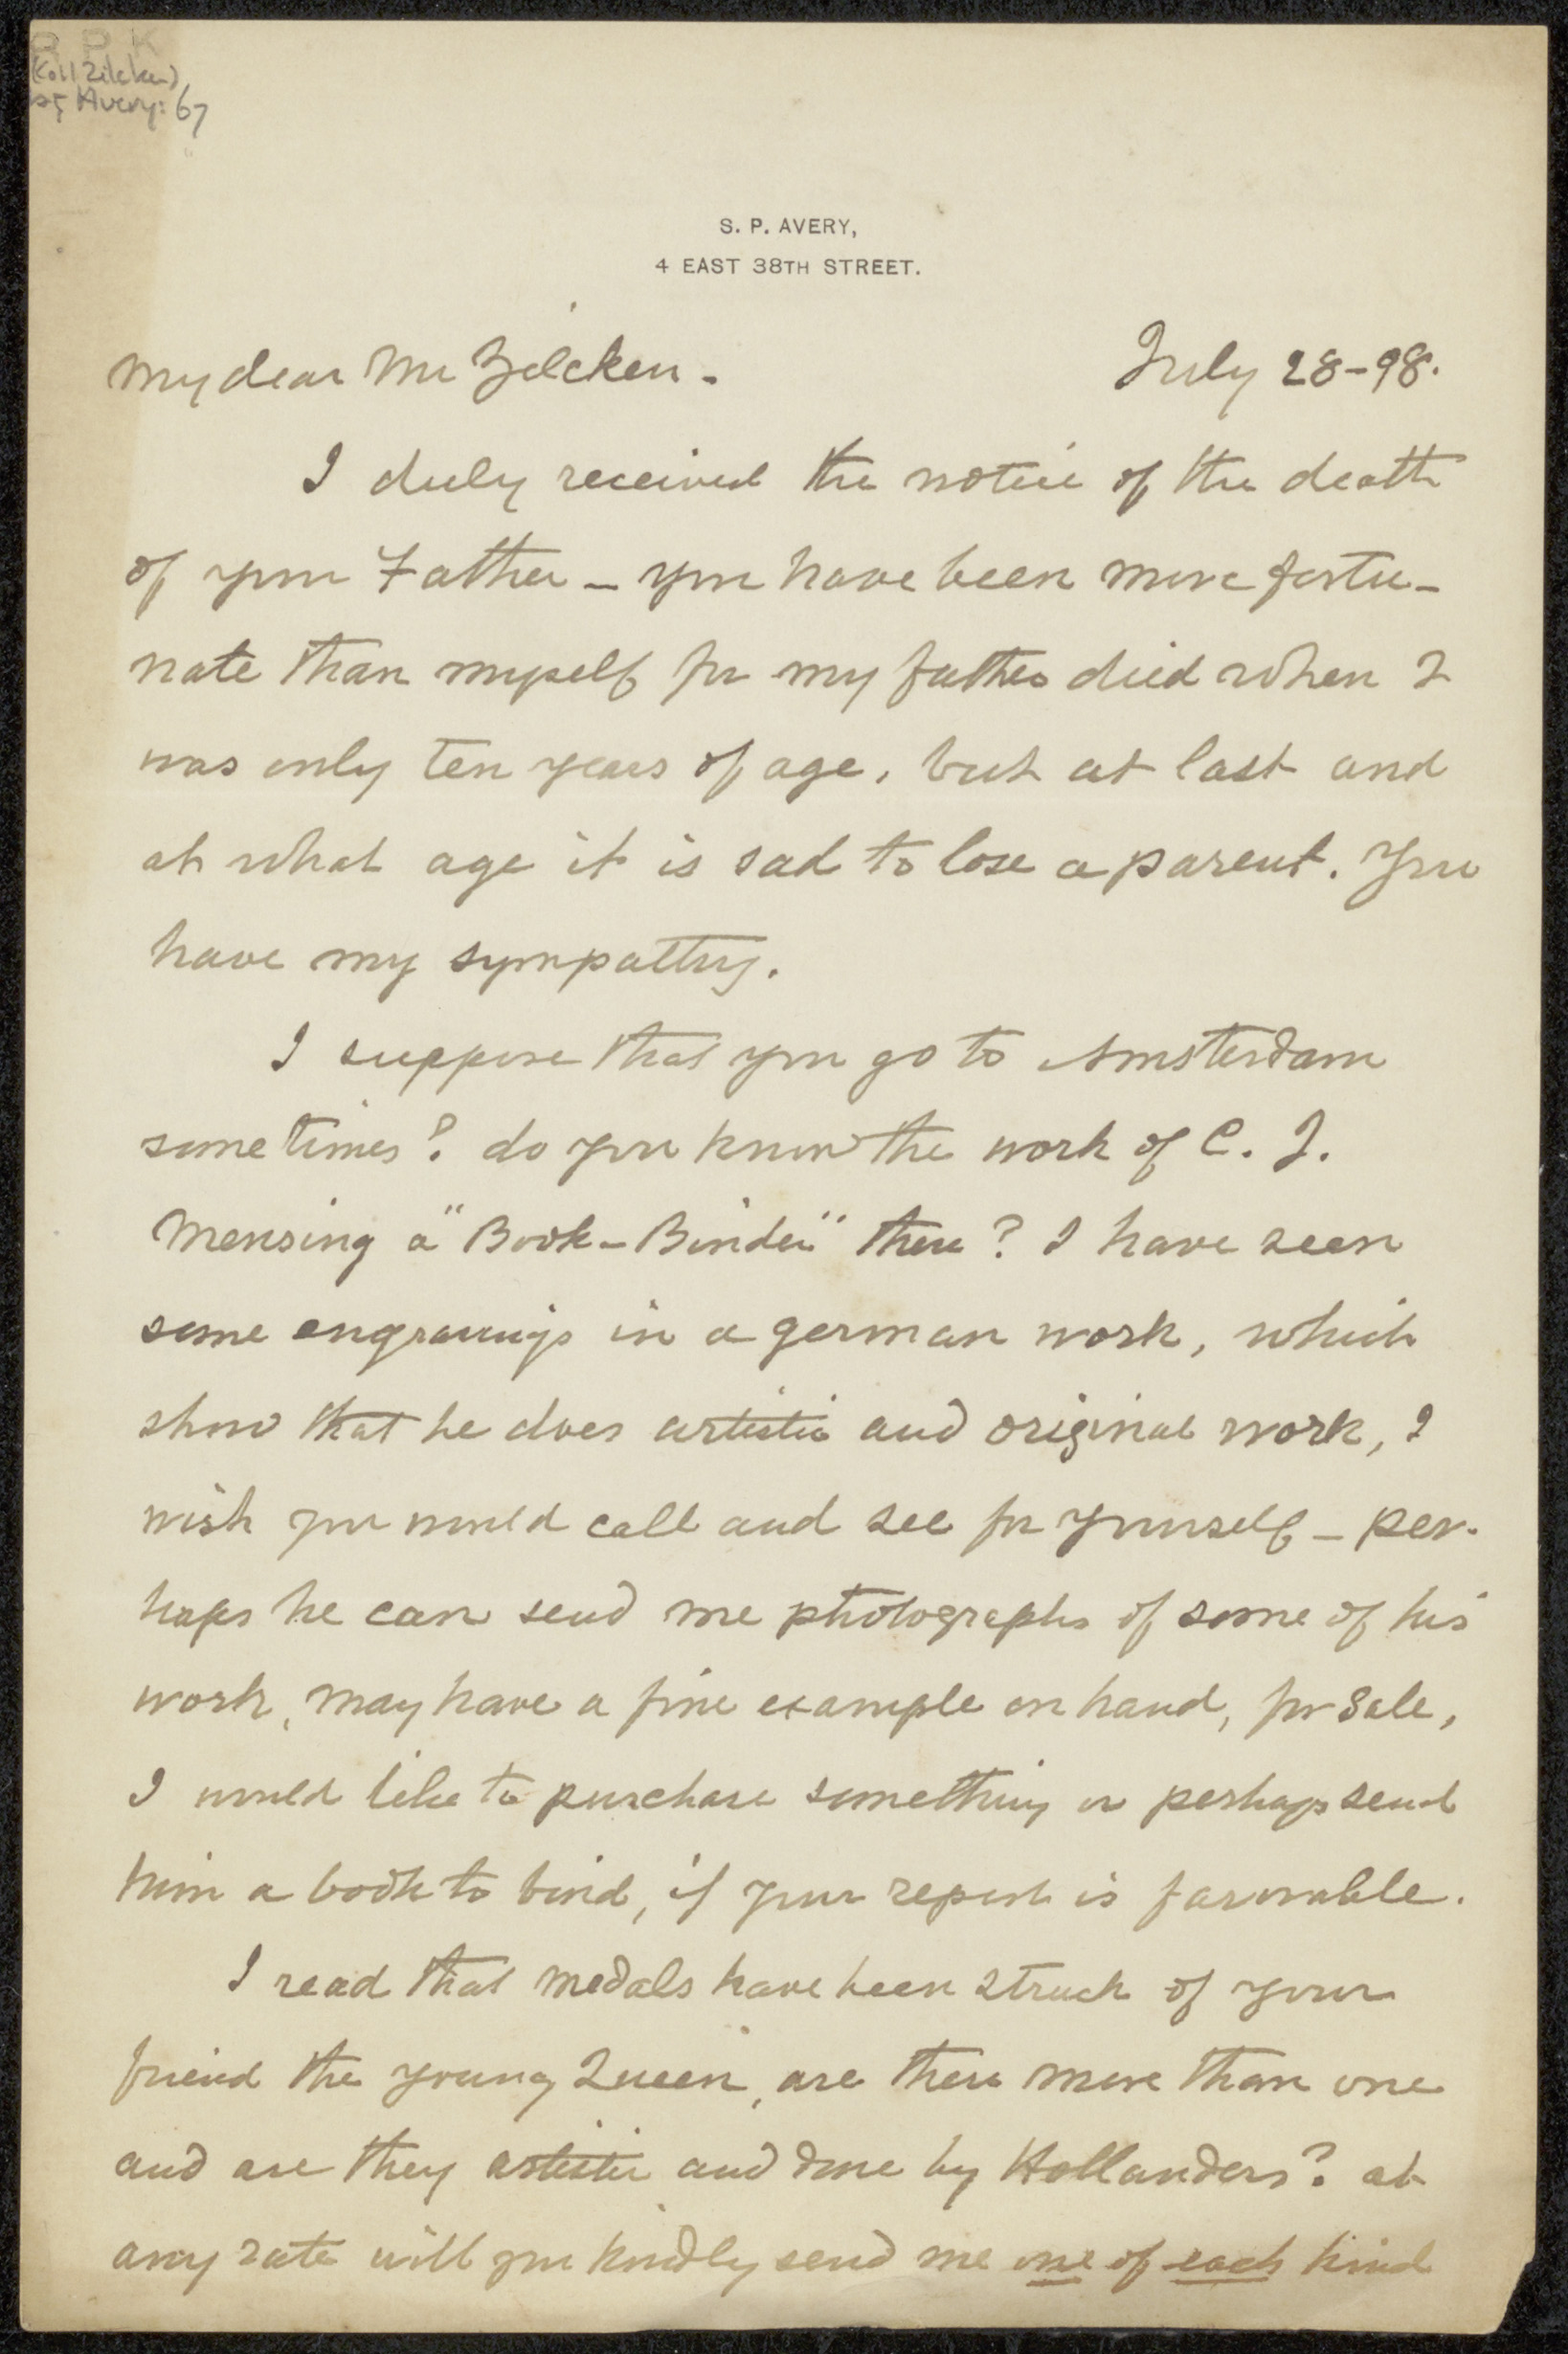 R P K
(Coll Zilcken)
Avery: 67
S. P. AVERY,
4 EAST 38TH STREET.
My dear Mr Zilcken - July 28-98.
I duly received the notice of the death
of your Father - you have been more fortu-
nate than myself for my father died when I
was only ten years of age, but at last and
at what age it is sad to lose a parent. You
have my sympathy.
I suppose that you go to Amsterdam
sometimes? do you know the work of C. J.
Mensing a "Book-Binder" there? I have seen
some engravings in a german work, which
show that he does artistic and original work, I
wish you would call and see for yourself - per-
haps he can send me photographs of some of his
work, may have a fine example on hand, for sale,
I would like to purchase something or perhaps send
him a book to bind, if your report is favorable.
I read that medals have been struck of your
friend the young Queen, are there more than one
and are they artistic and done by Hollanders? at
any rate will you kindly send me one of each kind